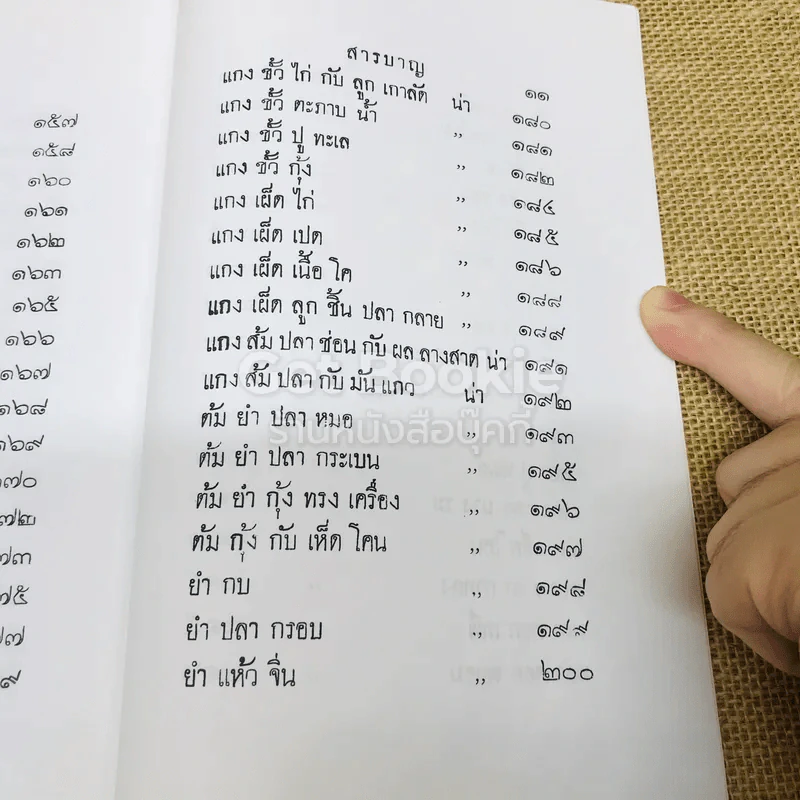 ๑๕๗
๑๕๘
๑๖๐
๑๖๑
๑๖๒
๑๖๓
๑๖๕
๑๖๖
๑๖๗
๑๖๘
๑๖๙
๑๗๐
๗๒
๗๓
๗๕
๗๗
๙
สารบาญ
๑๑
แกง ขั้ว ไก่ กับ ลูก เกาลัด น่า ๑๘๐
แกง ขั้ว ตะภาบ น้ำ ,, ๑๘๑
แกง ขั้ว ปู ทะเล ,, ๑๘๒
แกง ขั้ว กุ้ง ,, ๑๘๔
แกง เผ็ด ไก่ ,, ๑๘๕
แกง เผ็ด เปด ,, ๑๘๖
แกง เผ็ด เนื้อ โค ,, ๑๘๘
แกง เผ็ด ลูก ชิ้น ปลา กลาย ,, ๑๘๙
แกง ส้ม ปลา ช่อน กับ ผล ลางสาด น่า ๑๙๑
แกง ส้ม ปลา กับ มัน แกว น่า ๑๙๒
ต้ม ยำ ปลา หมอ ,, ๑๙๓
ต้ม ยำ ปลา กระเบน ,, ๑๙๕
ต้ม ยำ กุ้ง ทรง เครื่อง ,, ๑๙๖
ต้ม กุ้ง กับ เห็ด โคน ,, ๑๙๗
ยำ กบ ,, ๑๙๘
ยำ ปลา กรอบ ,, ๑๙๙
ยำ แห้ว จิ่น ,, ๒๐๐
Got Bookie
ร้านหนังสือบุ๊คกี้